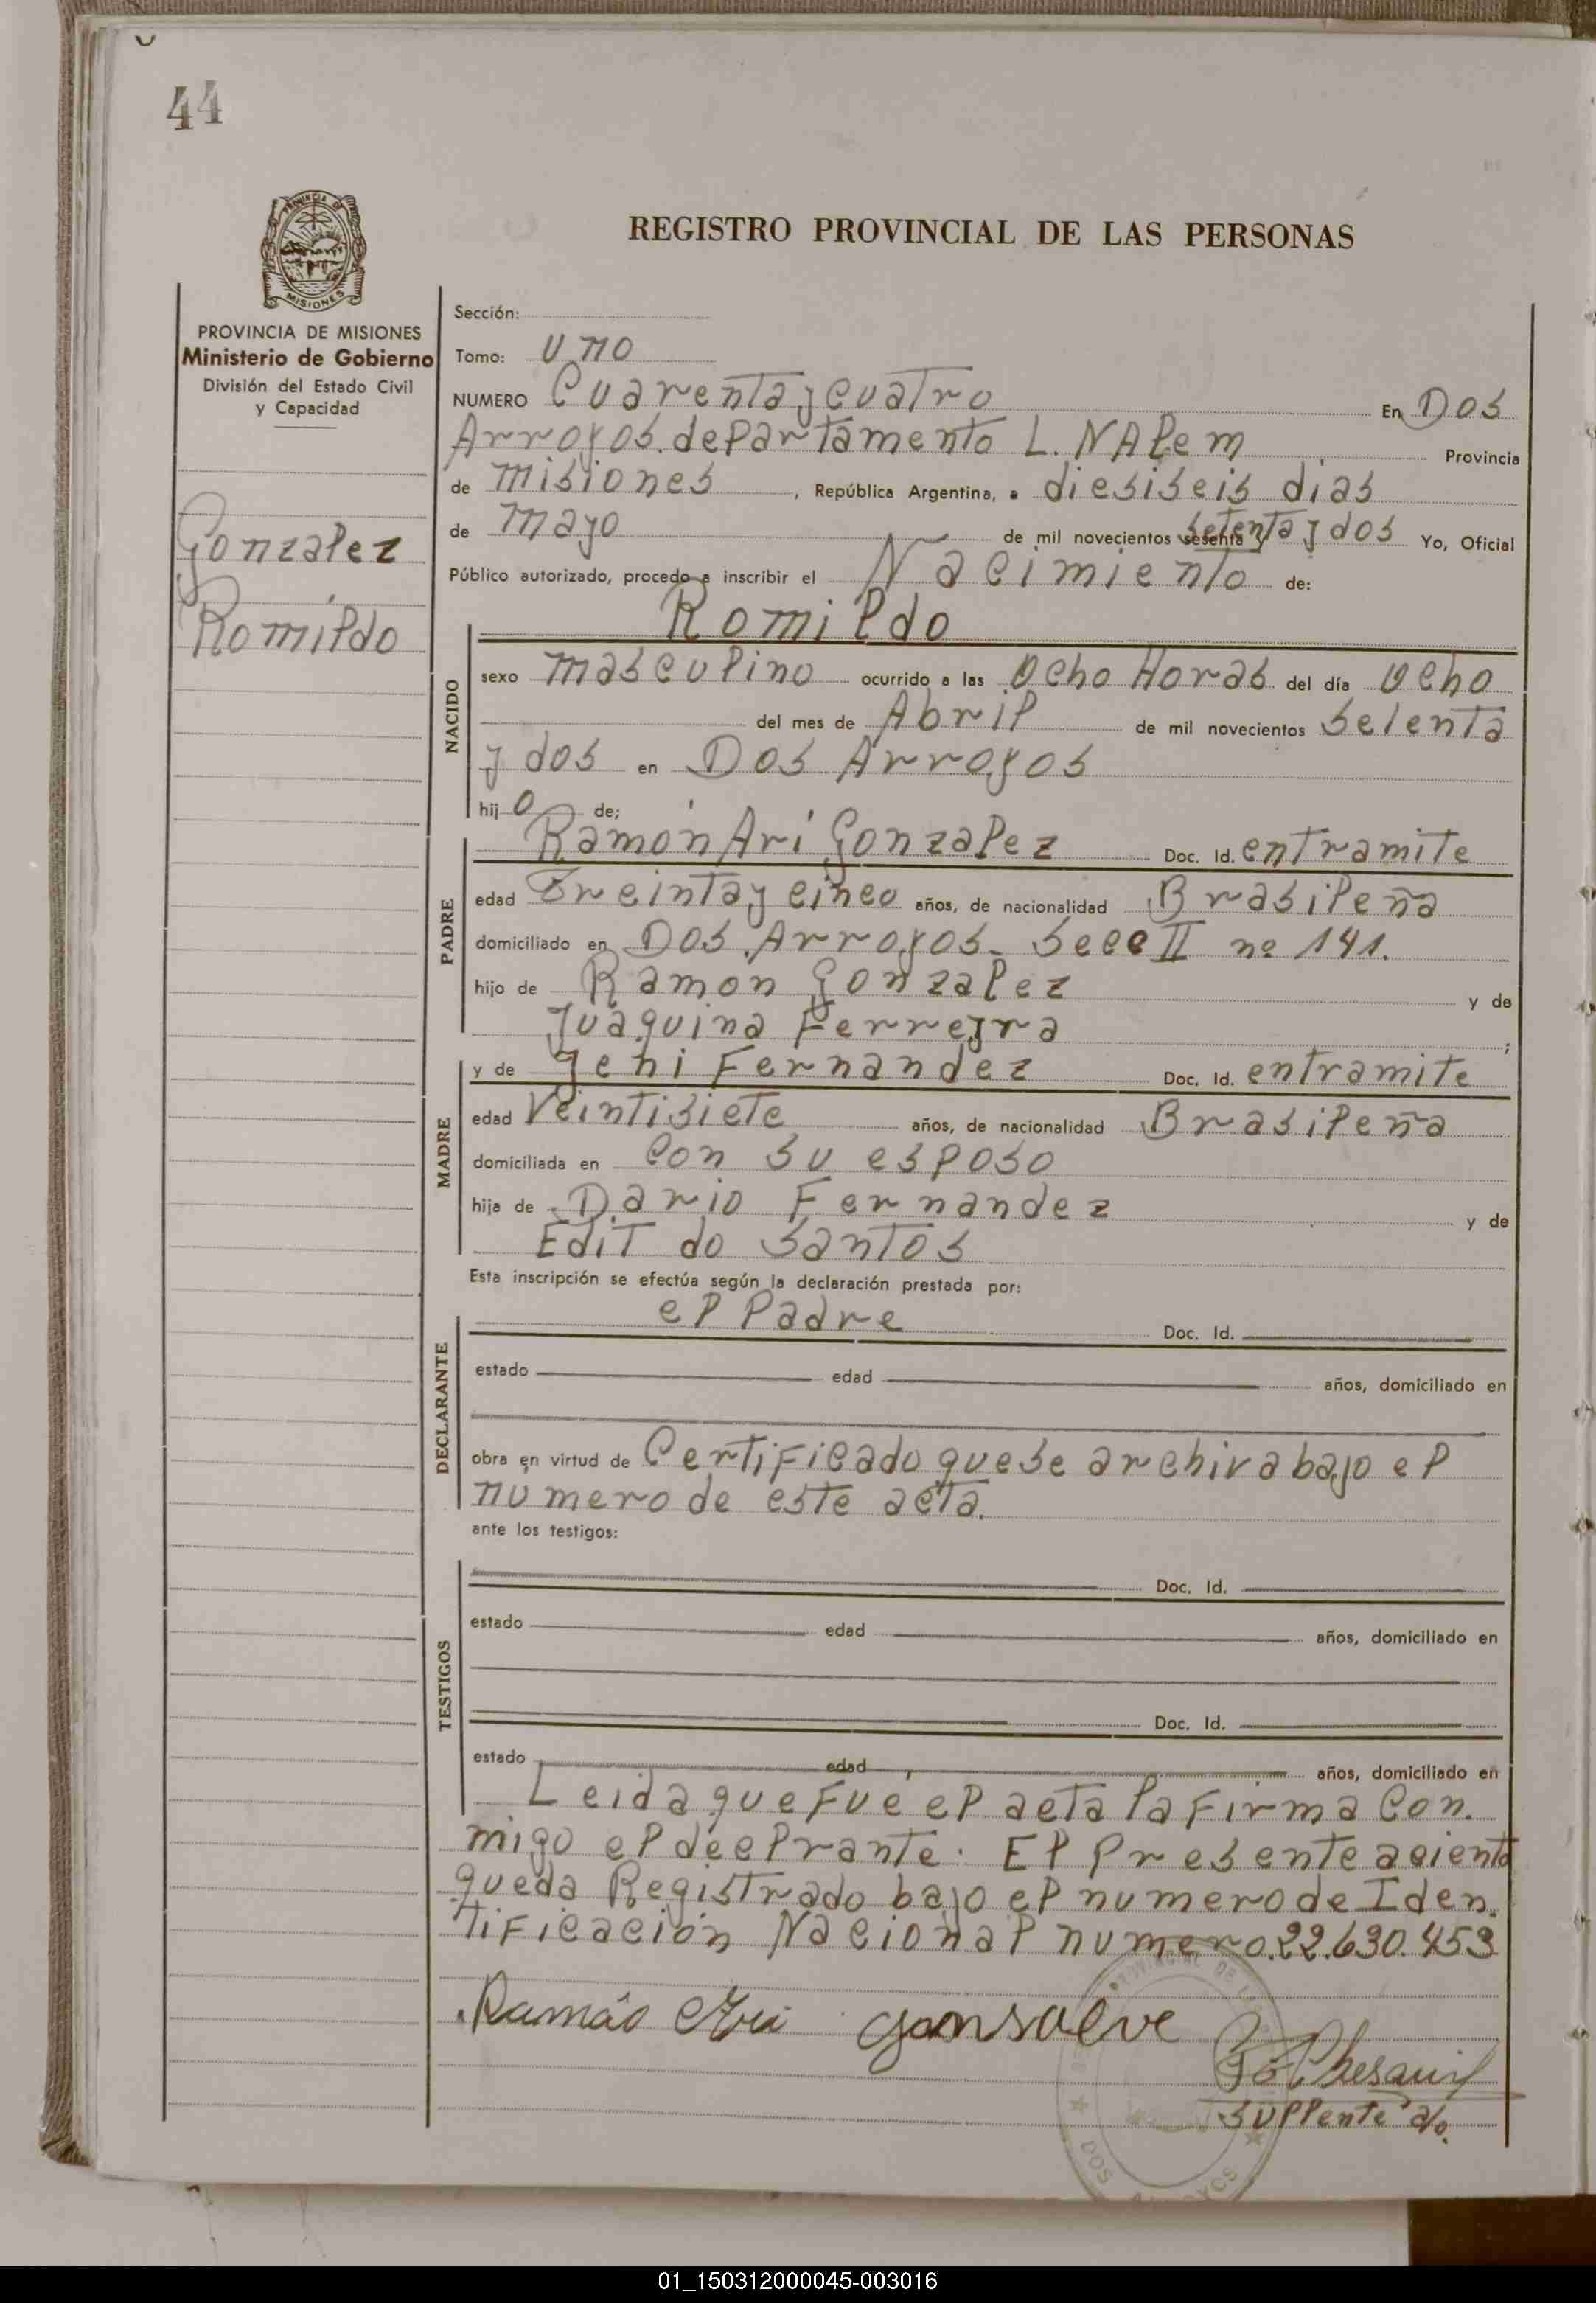 44
REGISTRO PROVINCIAL DE LAS PERSONAS
MISIONES
PROVINCIA DE MISIONES
Ministerio de Gobierno
División del Estado Civil
y Capacidad
Gonzalez
Romildo
Sección:
Tomo: uno
NUMERO Cuarenta y cuatro En Dos
Arroyos. departamento L. N Alem Provincia
de misiones, República Argentina, a diesiseis dias
de mayo de mil novecientos sesenta setenta y dos Yo, Oficial
Público autorizado, procedo a inscribir el Nacimiento de:
Romildo
NACIDO
sexo masculino ocurrido a las ocho Horas del día ocho
del mes de Abril de mil novecientos setenta
y dos en Dos Arroyos
hijo de;
Ramón Ari Gonzalez Doc. Id. entramite
PADRE
edad Treinta y cinco años, de nacionalidad Brasileña
domiciliado en Dos Arroyos. Secc II nº 141.
hijo de Ramon Gonzalez y de
Juaquina Ferreyra;
y de Jeni Fernandez Doc. Id. entramite
MADRE
edad Veintisiete años, de nacionalidad Brasileña
domiciliada en con su esposo
hija de Dario Fernandez y de
Edit do Santos
Esta inscripción se efectúa según la declaración prestada por:
el Padre Doc. Id.
DECLARANTE
estado edad años, domiciliado en
obra en virtud de Certificado que se archiva bajo el
numero de este acta.
ante los testigos:
TESTIGOS
Doc. Id.
estado edad años, domiciliado en
Doc. Id.
estado edad años, domiciliado en
Leida que Fue el acta la Firma con.
migo el declrante. El Presente aciento
queda Registrado bajo el numero de Iden.
tificación Nacional numero.22.630.453
Ramão Ari gonsalve
suplente a/o.
DOS ARROYOS
01_150312000045-003016